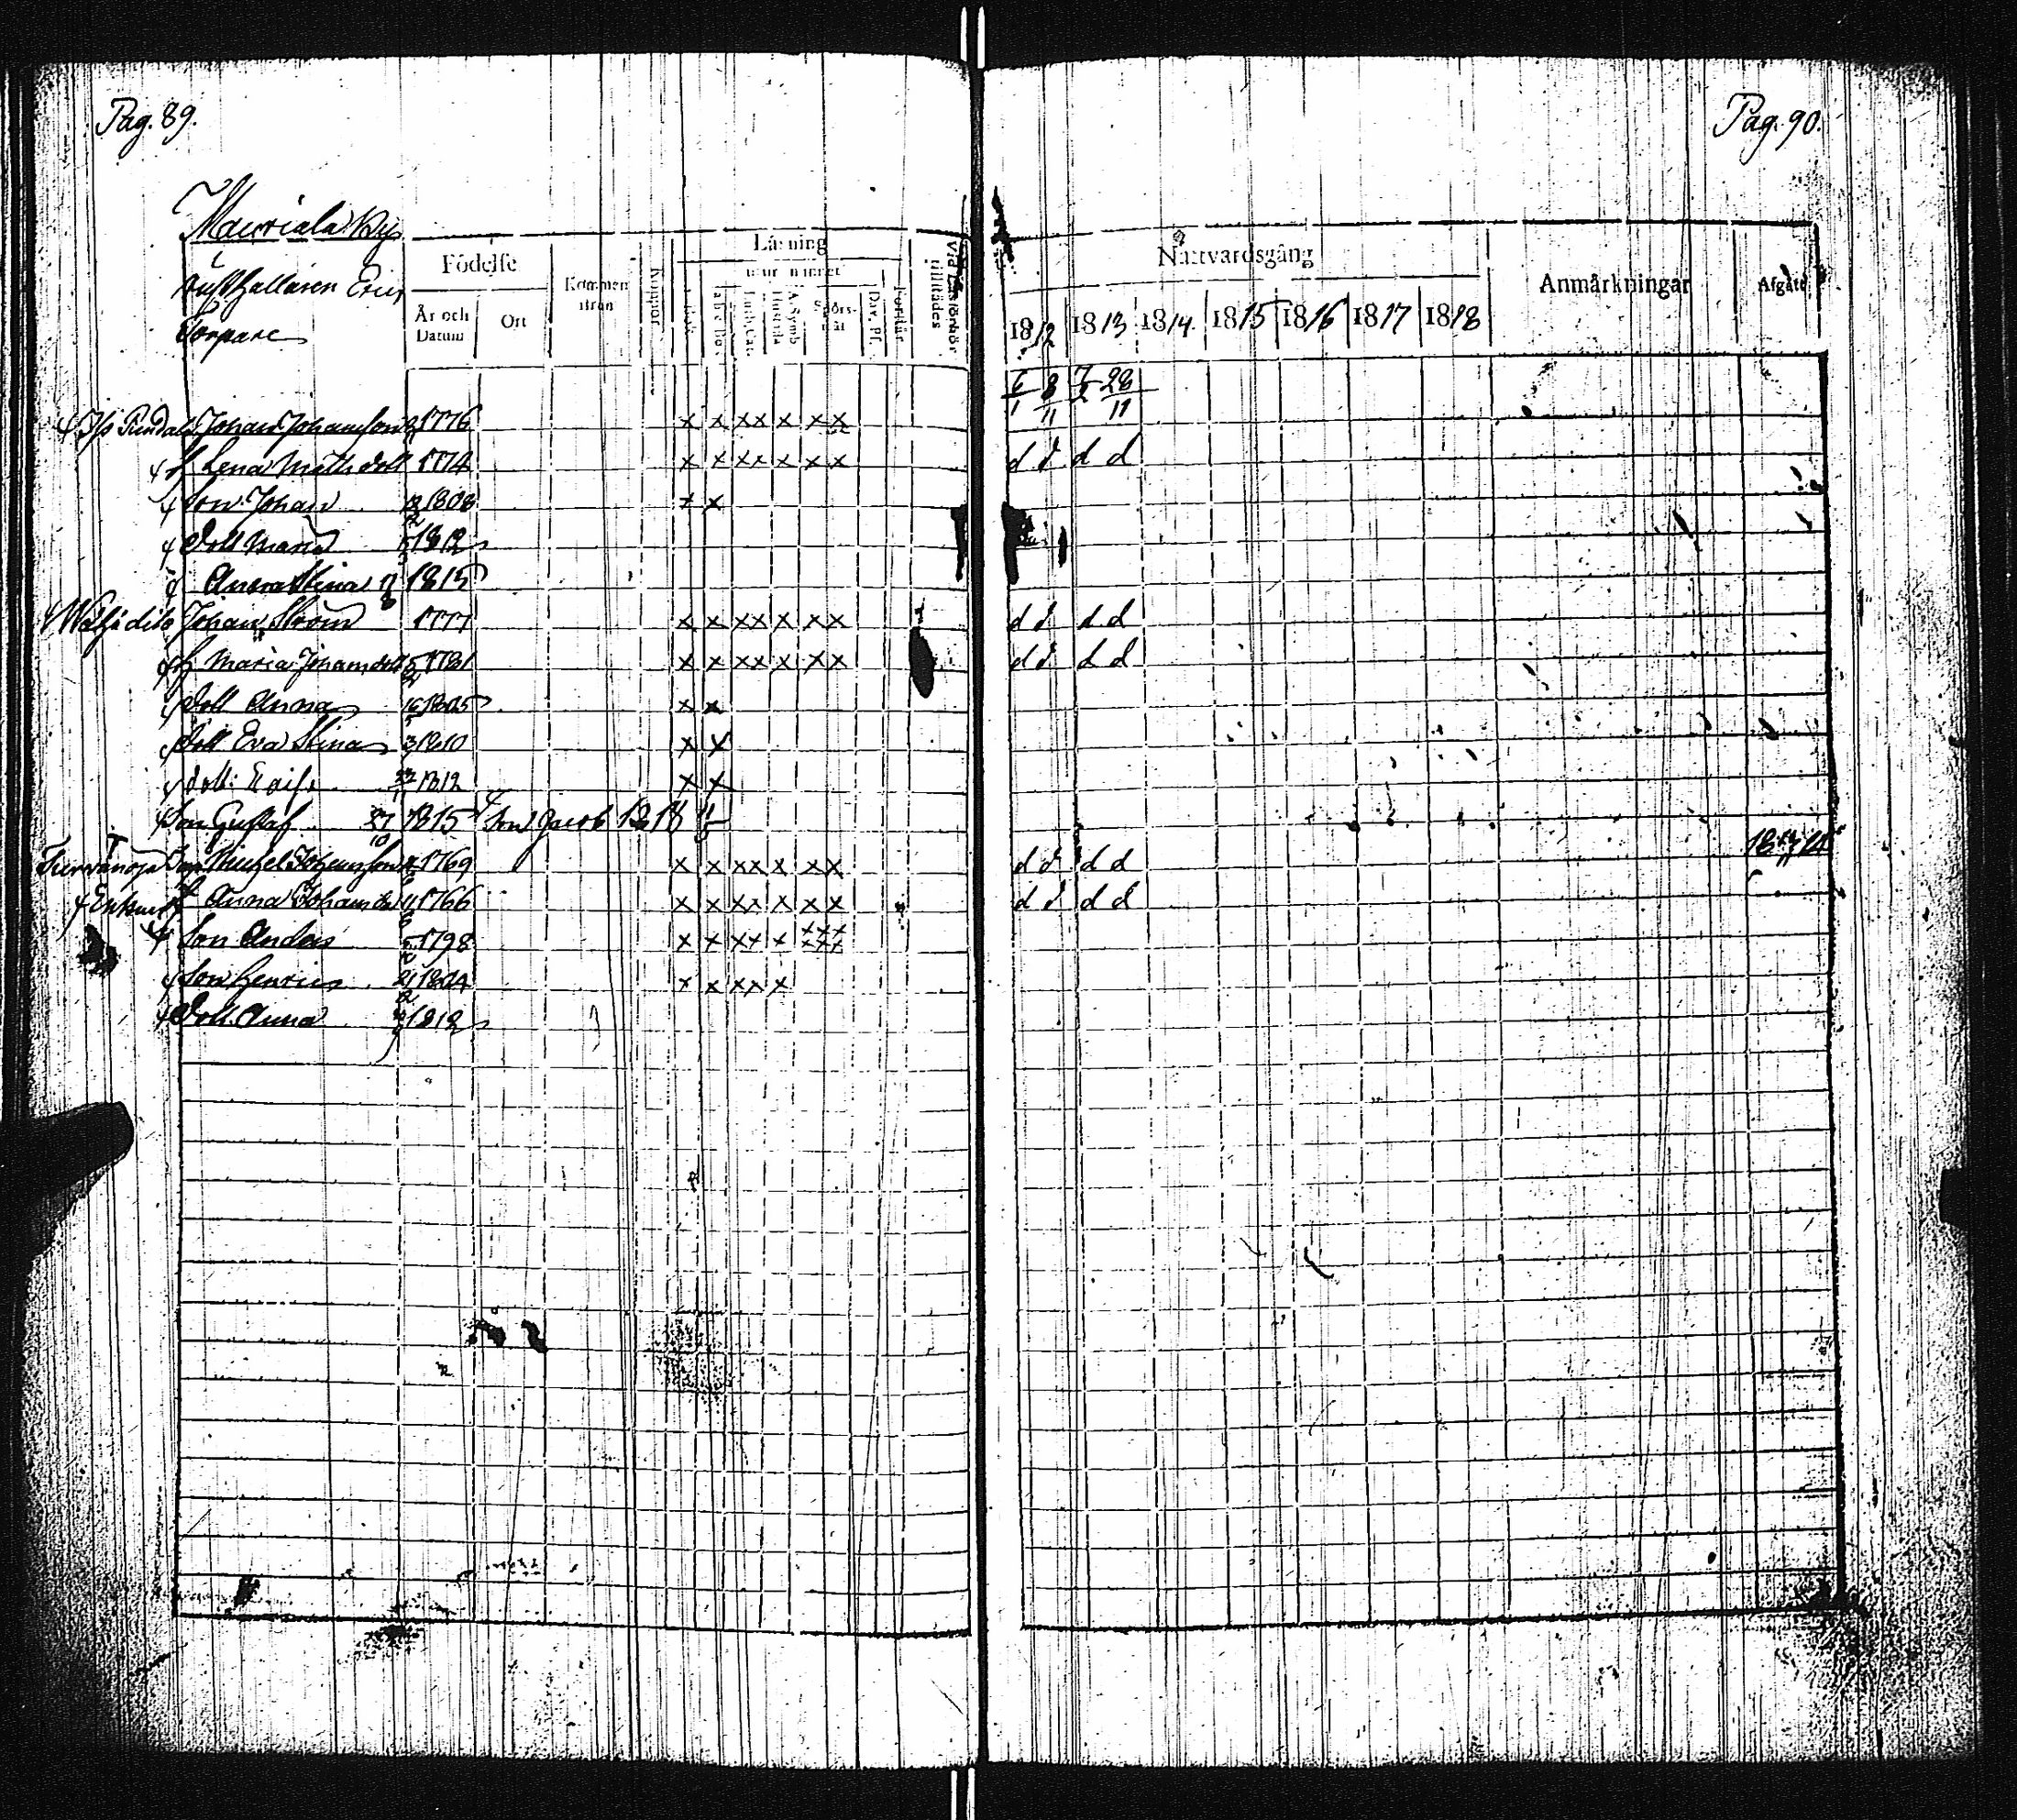 Pag. 89.
Pag. 90.
Mauriala By
Rusthållaren Erics
Torpare
Födelse
År och Datum
Ort
Kommen ifrån
Koppor
Läsning
utur minnet
A. Symb
Spörsmål
Dav. Ps.
Förstår
Vid Läsförhör tilltädes
Nattvardsgång
1812 1813 1814. 1815 1816 1817 1818
Anmärkningar
Afgått
6/1 8/11 28/11
Johan Johansson 1776 x x xx x xx
H Lena Matts dott 1774 x x xx x xx d d d d
Son Johan 1808 x x
Dott Maria 1812
Anna Stina 1815
dito Johan Ström 1777 x x xx x xx d d d d
H Maria Johans dott 1781 x x xx x xx d d d d
Dott Anna 16 1805 x x
Dott Eva Stina 3 1810 x x
dott: 1812 x x
Son Gustaf 27/10 1815 Son Jacob 1818
Michel Johansson 1769 x x xx x xx d d d d
Enkan Anna Johans dr 1766 x x xx x xx d d d d
Son Anders 1798 x x xx x xxx xxx
Son Henric 21 1804 x x xx x
Dott. Anna 1812